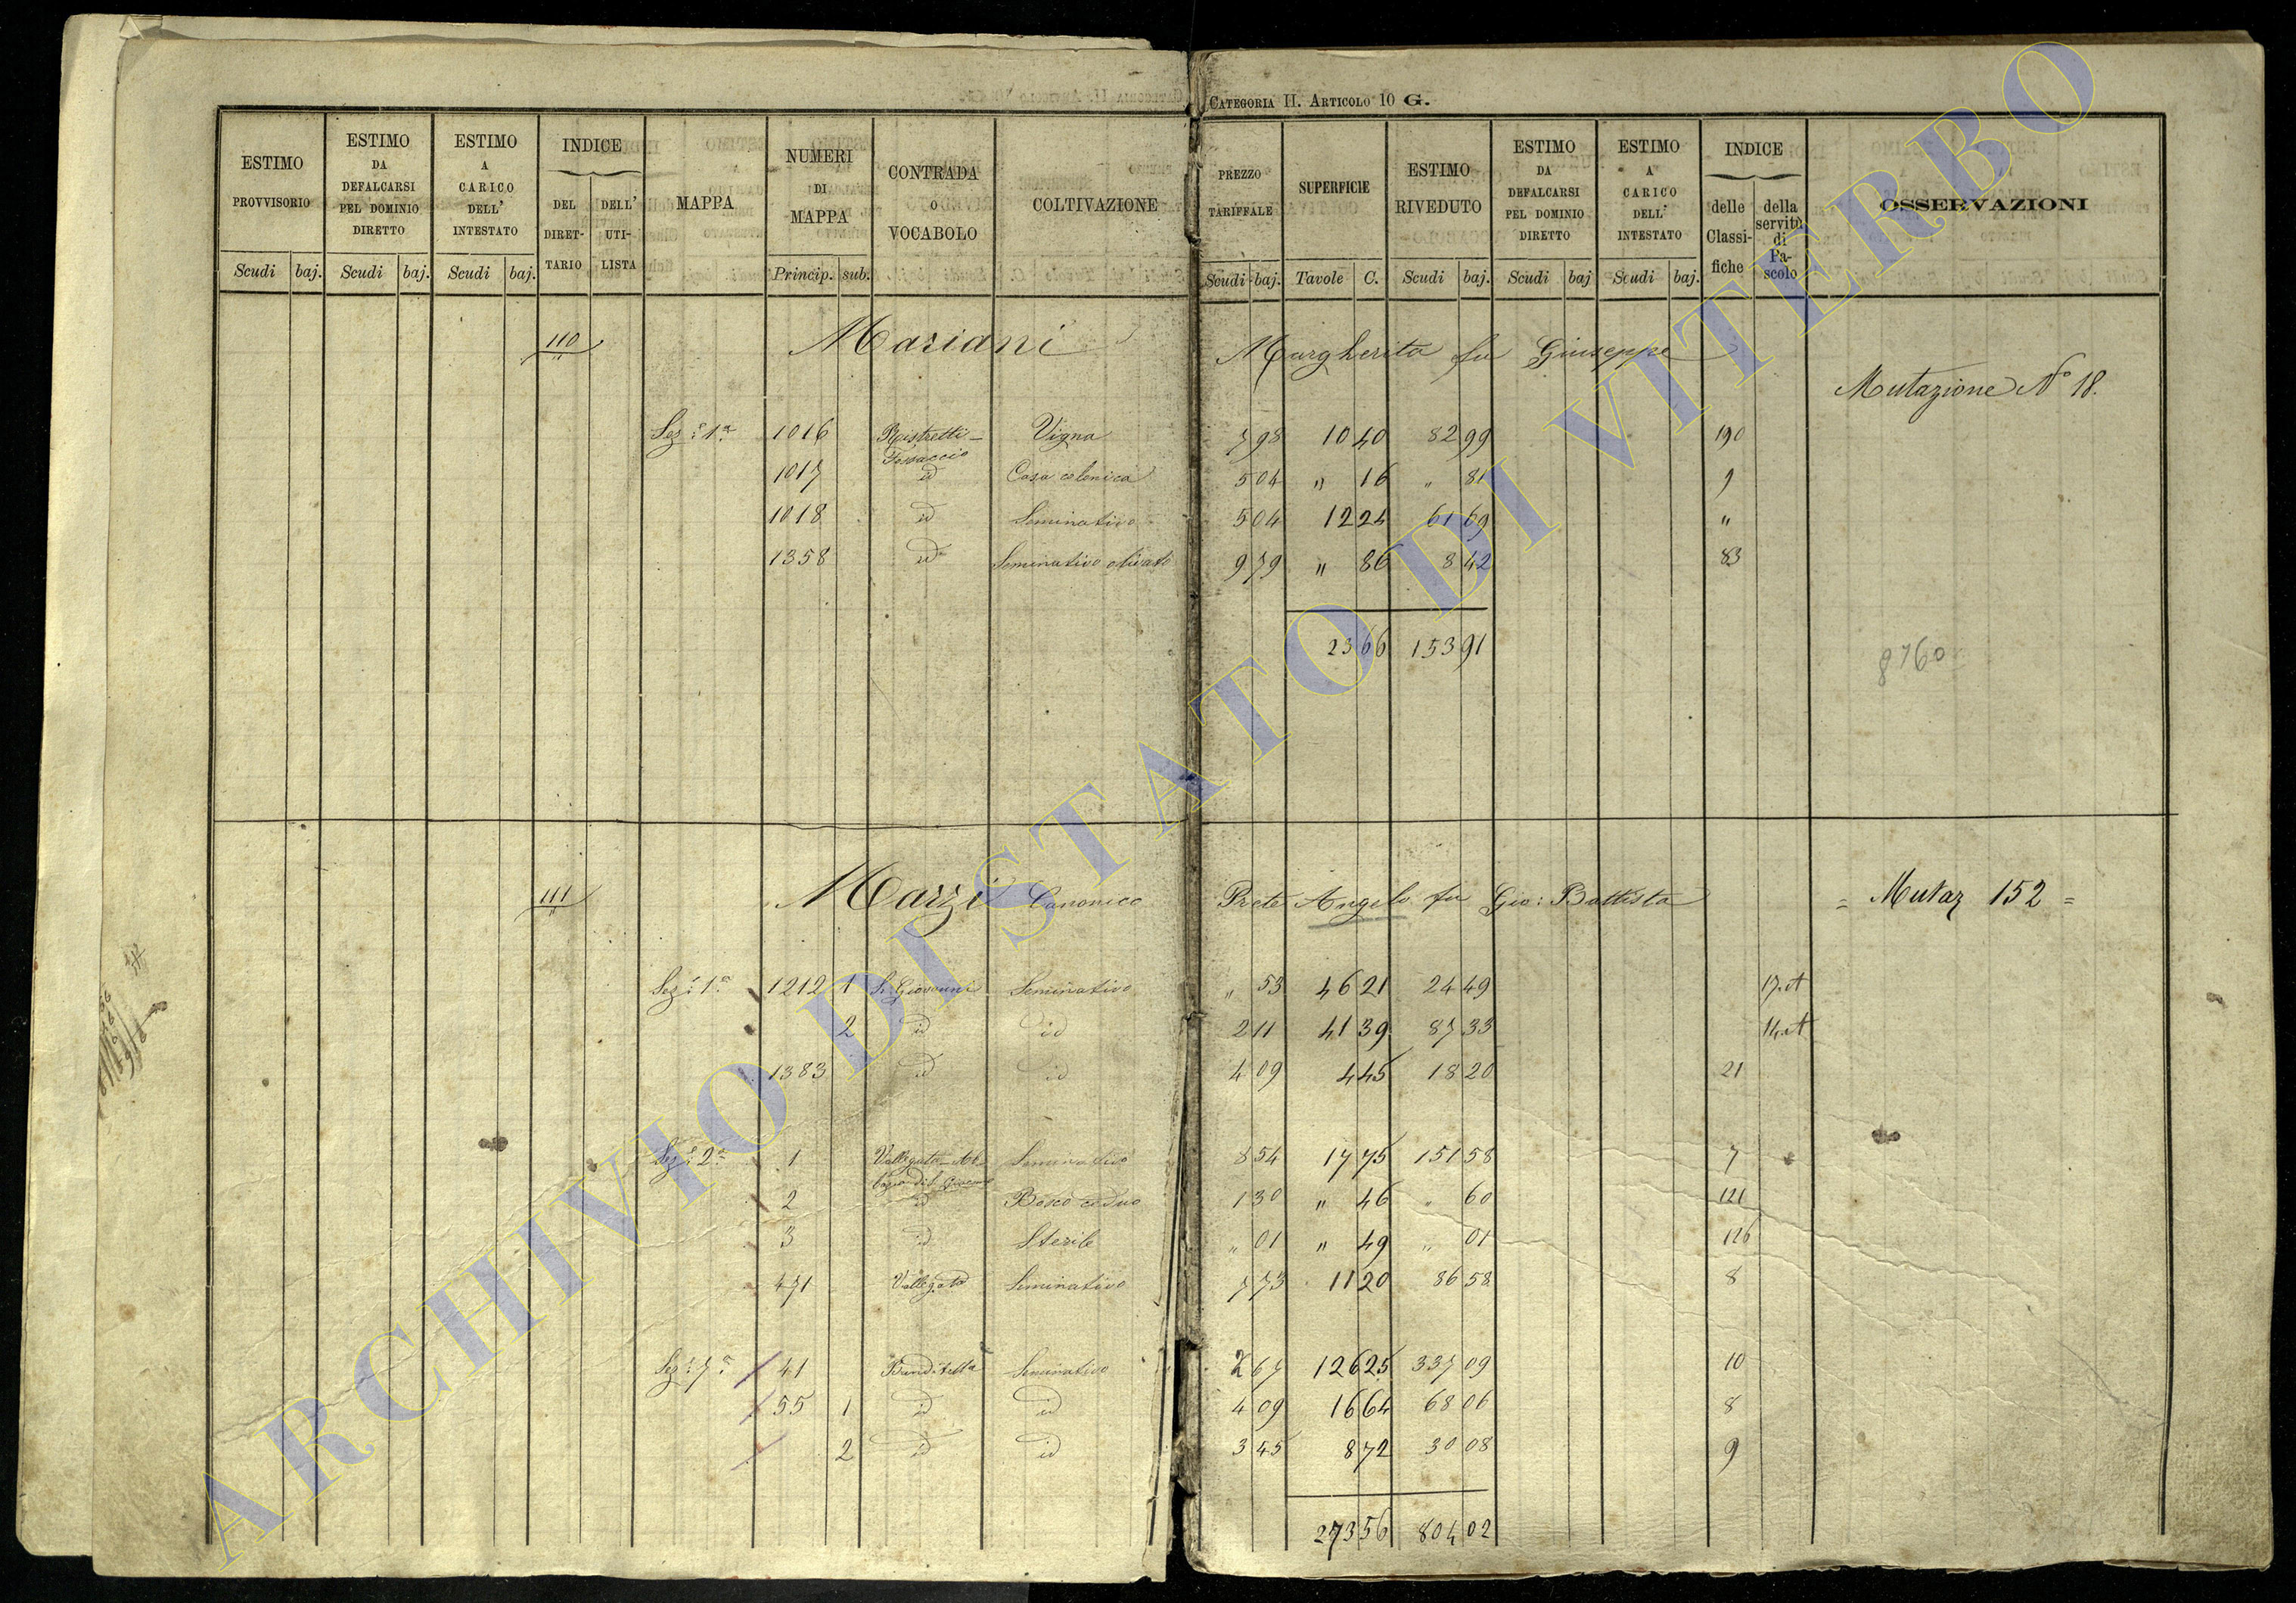 CATEGORIA II. ARTICOLO 10 G.
ESTIMO PROVVISORIO Scudi baj.
ESTIMO DA DEFALCARSI PEL DOMINIO DIRETTO Scudi baj.
ESTIMO A CARICO DELL' INTESTATO Scudi baj.
INDICE DEL DIRETTARIO DELL' UTILISTA
MAPPA
NUMERI DI MAPPA Princip. sub.
CONTRADA O VOCABOLO
COLTIVAZIONE
PREZZO TARIFFALE Scudi baj.
SUPERFICIE Tavole C.
ESTIMO RIVEDUTO Scudi baj.
ESTIMO DA DEFALCARSI PEL DOMINIO DIRETTO Scudi baj
ESTIMO A CARICO DELL' INTESTATO Scudi baj.
INDICE delle Classifiche della servitù di Pascolo
OSSERVAZIONI
110 Mariani Margherita fu Giuseppe
Mutazione N° 18.
Sez: 1a 1016 Ristretti- Fossaccio Vigna 7 98 10 40 82 99 190
1017 id Casa colonica 5 04 " 16 " 81 9
1018 id Seminativo 5 04 12 24 61 69 "
1358 id Seminativo olivato 9 79 " 86 8 42 83
23 66 153 91
8760
111 Marzi Canonico Prete Angelo fu Gio: Battista = Mutaz 152 =
Sez: 1a 1212 1 S. Giovanni Seminativo " 53 46 21 24 49 17. A
2 id id 2 11 41 39 87 33 14. A
1383 id id 4 09 4 45 18 20 21
Sez: 2a 1 Vallegata Seminativo 8 54 17 75 151 58 7
2 id Bosco ceduo 1 30 " 46 " 60 121
3 id Sterile " 01 " 49 " 01 126
471 Vallegata Seminativo 7 73 11 20 86 58 8
Sez: 7a 41 Banditella Seminativo 2 67 126 25 337 09 10
55 1 id id 4 09 16 64 68 06 8
2 id id 3 45 8 72 30 08 9
273 56 804 02
ARCHIVIO DI STATO DI VITERBO